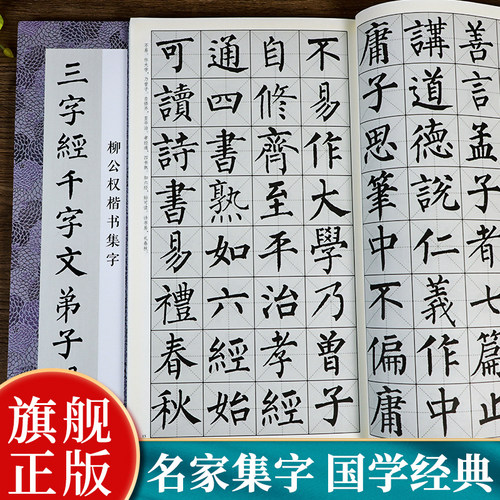 三字經千字文弟子
柳公权楷书集字
善言孟子者七篇止
講道德說仁義作中
庸子思筆中不偏庸
不易作大學乃曾子
自修齊至平治孝經
通四書熟如六經始
可讀詩書易禮春秋
旗舰
正版
名家集字 国学经典